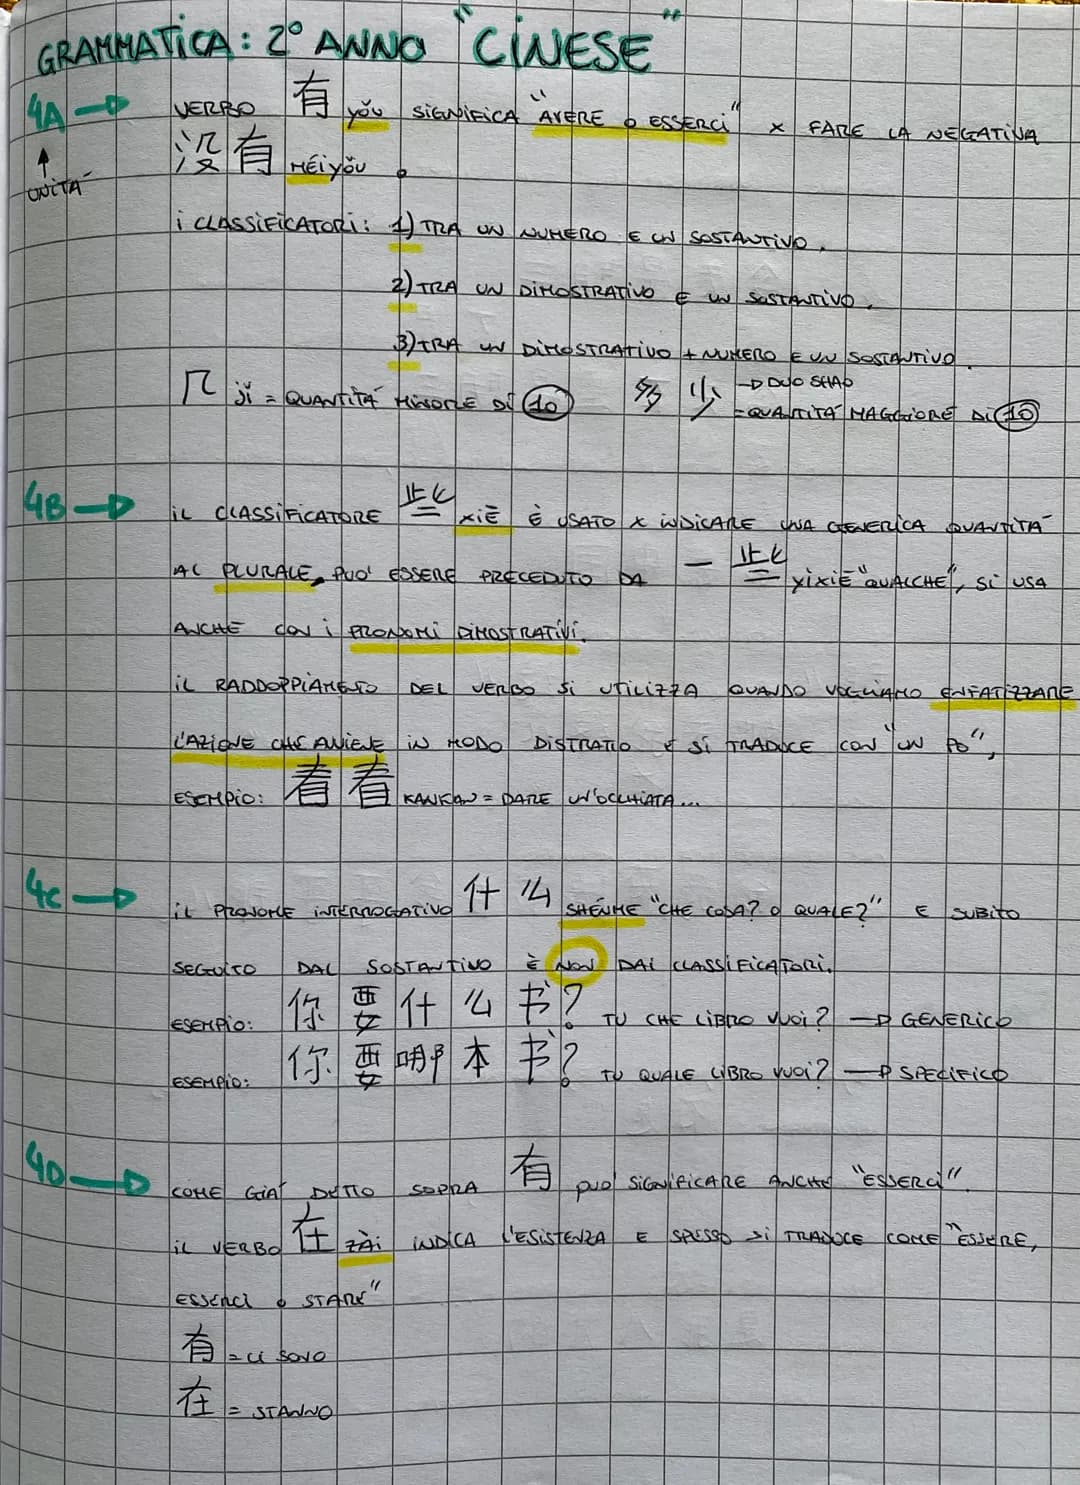 GRAMMATICA: 2° ANNO "CINESE"
4A → VERBO 有 yǒu SIGNIFICA "AVERE o ESSERCI" x FARE LA NEGATIVA
↑ UNITÁ 没有 MÉiyǒu.
i CLASSIFICATORI: 1) TRA UN NUMERO E UN SOSTANTIVO.
2) TRA UN DIMOSTRATIVO E UN SOSTANTIVO.
3) TRA UN DIMOSTRATIVO + NUMERO E UN SOSTANTIVO.
几 jǐ = QUANTITÁ MINORE Di 10 多少 → DUO SHAO
= QUANTITÁ MAGGIORE Di 10
4B → iL CLASSIFICATORE 些 XIĒ È USATO x INDICARE UNA GENERICA QUANTITÁ
AL PLURALE, PUO' ESSERE PRECEDUTO DA 一些 yixiē "QUALCHE", Si USA
ANCHE CON i PRONOMi DIMOSTRATIVI.
iL RADDOPPIAMENTO DEL VERBO Si UTILIZZA QUANDO VOGLIAMO ENFATIZZARE
L'AZIONE CHE AVIENE IN MODO DISTRATTO E Si TRADUCE CON "UN PO",
ESEMPIO: 看看 KANKAN = DARE UN'OCCHIATA...
4C → iL PRONOME INTERROGATIVO 什么 SHÉNME "CHE COSA? O QUALE?" E SUBITO
SEGUITO DAL SOSTANTIVO È NON DAI CLASSIFICATORI.
ESEMPIO: 你要什么书? TU CHE LIBRO VUOI? → GENERICO
ESEMPIO: 你要哪本书? TU QUALE LIBRO VUOI? → SPECIFICO
4D → COME GIA' DETTO SOPRA 有 puo' SIGNIFICARE ANCHE "ESSERCI".
iL VERBO 在 ZÀi INDICA L'ESISTENZA E SPESSO Si TRADUCE COME "ESSERE,
ESSERCI o STARE"
有 = Ci SONO
在 = STANNO